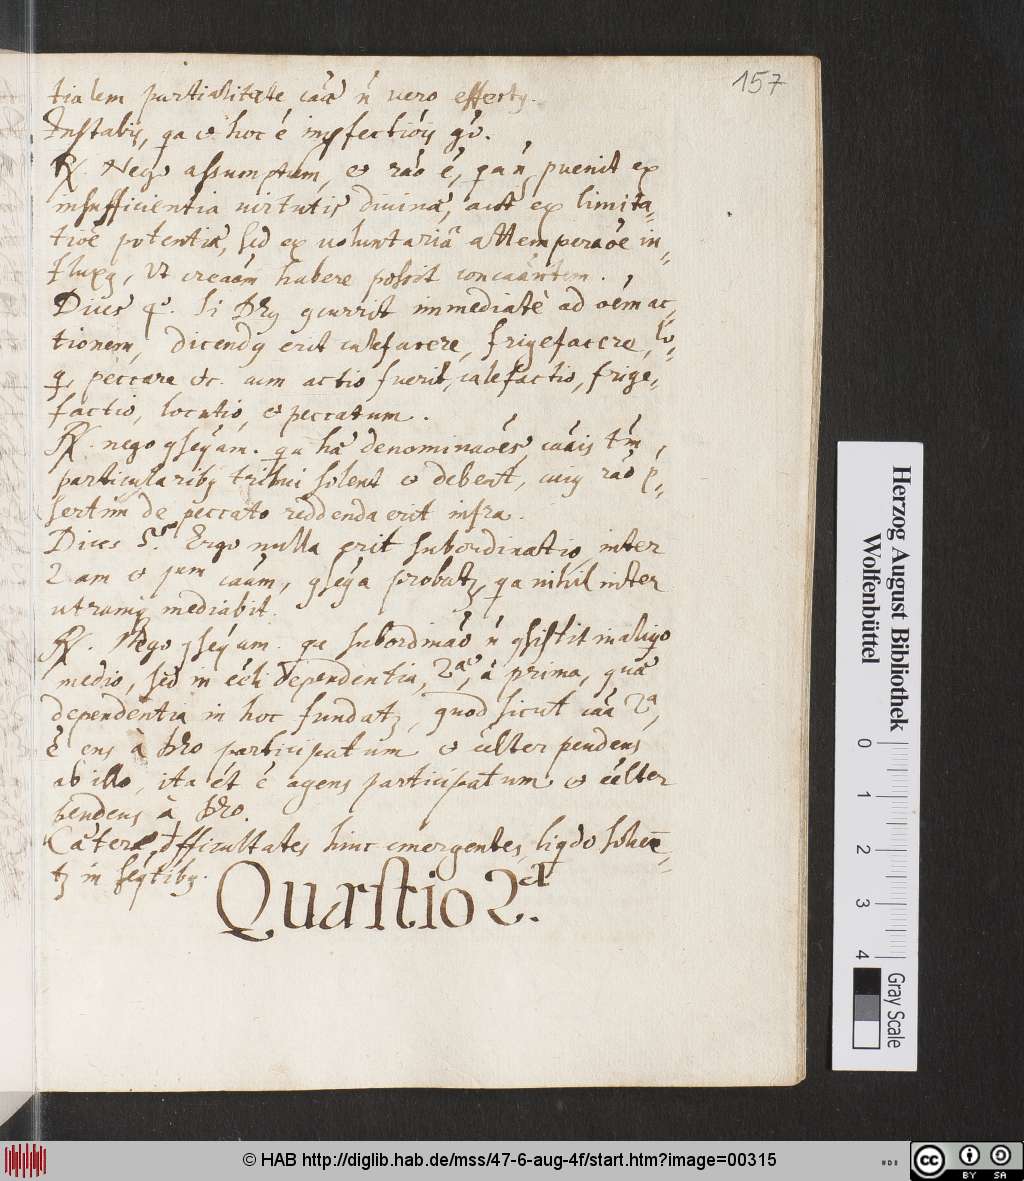 157
tialem partialitate cāā n̄ vero effectq.
Instabis, qa et hoc ē impfectiōis gō.
R. Nego assumptum, et rāo ē, qa n̄ pvenit ex
insufficientia virtutis divinæ, aut ex limita„
tiōē potentiæ, sed ex voluntariâ attemperaōē in„
fluxq, ut creaām habere possit concaāntem.
Dices 4°. Si Dēq gcurrit immediatè ad oēm ac„
tionem, dicendq erit calefacere, frigefacere, lo„
q, peccare etc. cum actio fuerit, calefactio, frige„
factio, locutio, et peccatum.
R. nego gseqām. qa hæ denominaōēs, caāis tm̄
particularibq tribui solent et debent, cuiq rāo p„
sertim de peccato reddenda erit infra.
Dices 5°. Ergo nulla erit subordinatio inter
2am et 1am caām, gseqa probatr, qa nihil inter
utramq mediabit.
R. Nego gseqam. qa subordināō n̄ gsistit in aliqo
medio, sed in eēli dependentia, 2æ, à prima, quæ
dependentia in hoc fundatr, quod sicut cāā 2ª,
ē ens à Dēo participatum et eēlter pendens
ab illo, ita et ē agens participatum et eēlter
pendens à Dēo.
Cæteræ difficultates hinc emergentes, liqdo solven„
tr in seqtibq.
Quæstio 2ª.
Herzog August Bibliothek
Wolfenbüttel
0 1 2 3 4
Gray Scale
© HAB http://diglib.hab.de/mss/47-6-aug-4f/start.htm?image=00315
cc BY SA